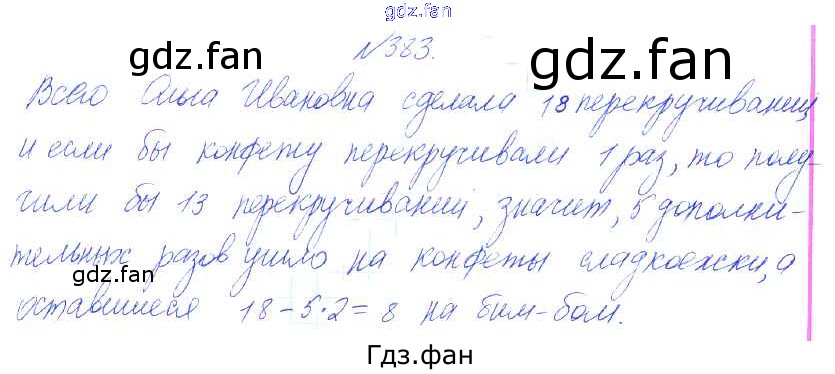 gdz.fan
№383.
gdz.fan gdz.fan
Всего Ольга Ивановна сделала 18 перекручиваний,
и если бы конфету перекручивали 1 раз, то полу-
чили бы 13 перекручиваний, значит, 5 дополни-
тельных разов ушло на конфеты сладкоежки, а
gdz.fan gdz.fan
оставшиеся 18-5·2=8 на бим-бом.
Гдз.фан